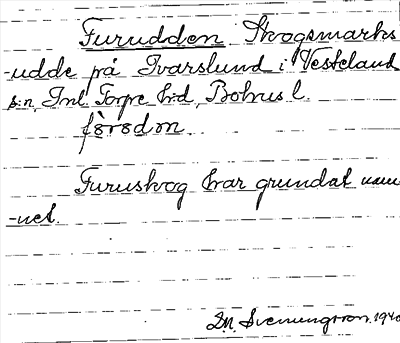 Furudden Skogsmarks
-udde på Ivarslund i Västerlanda
s:n, Inl. Torpe h:d, Bohus l.
Furuskog har grundat nam
-net.
Svenungsson. 1940